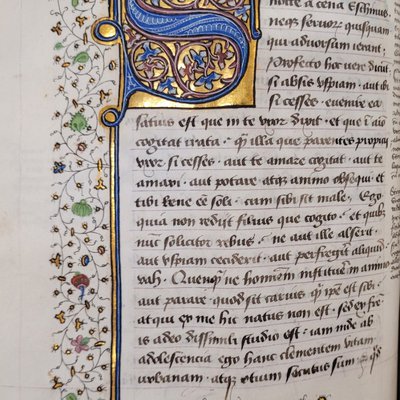 nocte a cena Eschinus
neqʒ seruoꝝ quisquam
qui aduorsum ierant.
Profecto hoc vere dicūt
si absis vspiam aut ibi
si cesses. euenire ea
satius est que in te vxor dixit. et que ī aīo
cogitat irata. qͣ illa que parentes propicij
vxor si cesses. aut te amare cogitat. aut te
amari. aut potare atqʒ animo obsequi et
tibi bene eē soli. cum sibi sit male. Ego
quia non redijt filius que cogito. et quibꝰ
nūc solicitor rebus. ne aut ille alserit.
aut vspiam ceciderit. aut perfregerit aliquid
vah. Quemqͣ ne hominem instituē in animo
aut parare. quod sit carius. qͣ ipē est sibi.
atqui ex me hic natus non est. sed ex fre
is adeo dissimili studio est. iam inde ab
adolescencia ego hanc clementem vitam
vrbanam. atqʒ otium secutus sum. et qd